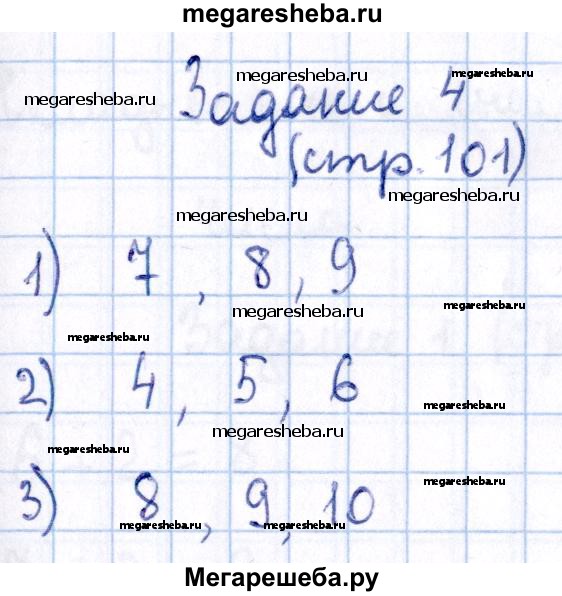 megaresheba.ru
megaresheba.ru megaresheba.ru megaresheba.ru
Задание 4
(стр. 101)
megaresheba.ru
megaresheba.ru
1) 7, 8, 9
megaresheba.ru megaresheba.ru
megaresheba.ru
2) 4, 5, 6
megaresheba.ru
megaresheba.ru
megaresheba.ru
megaresheba.ru
3) 8, 9, 10
megaresheba.ru megaresheba.ru
Мегарешеба.ру